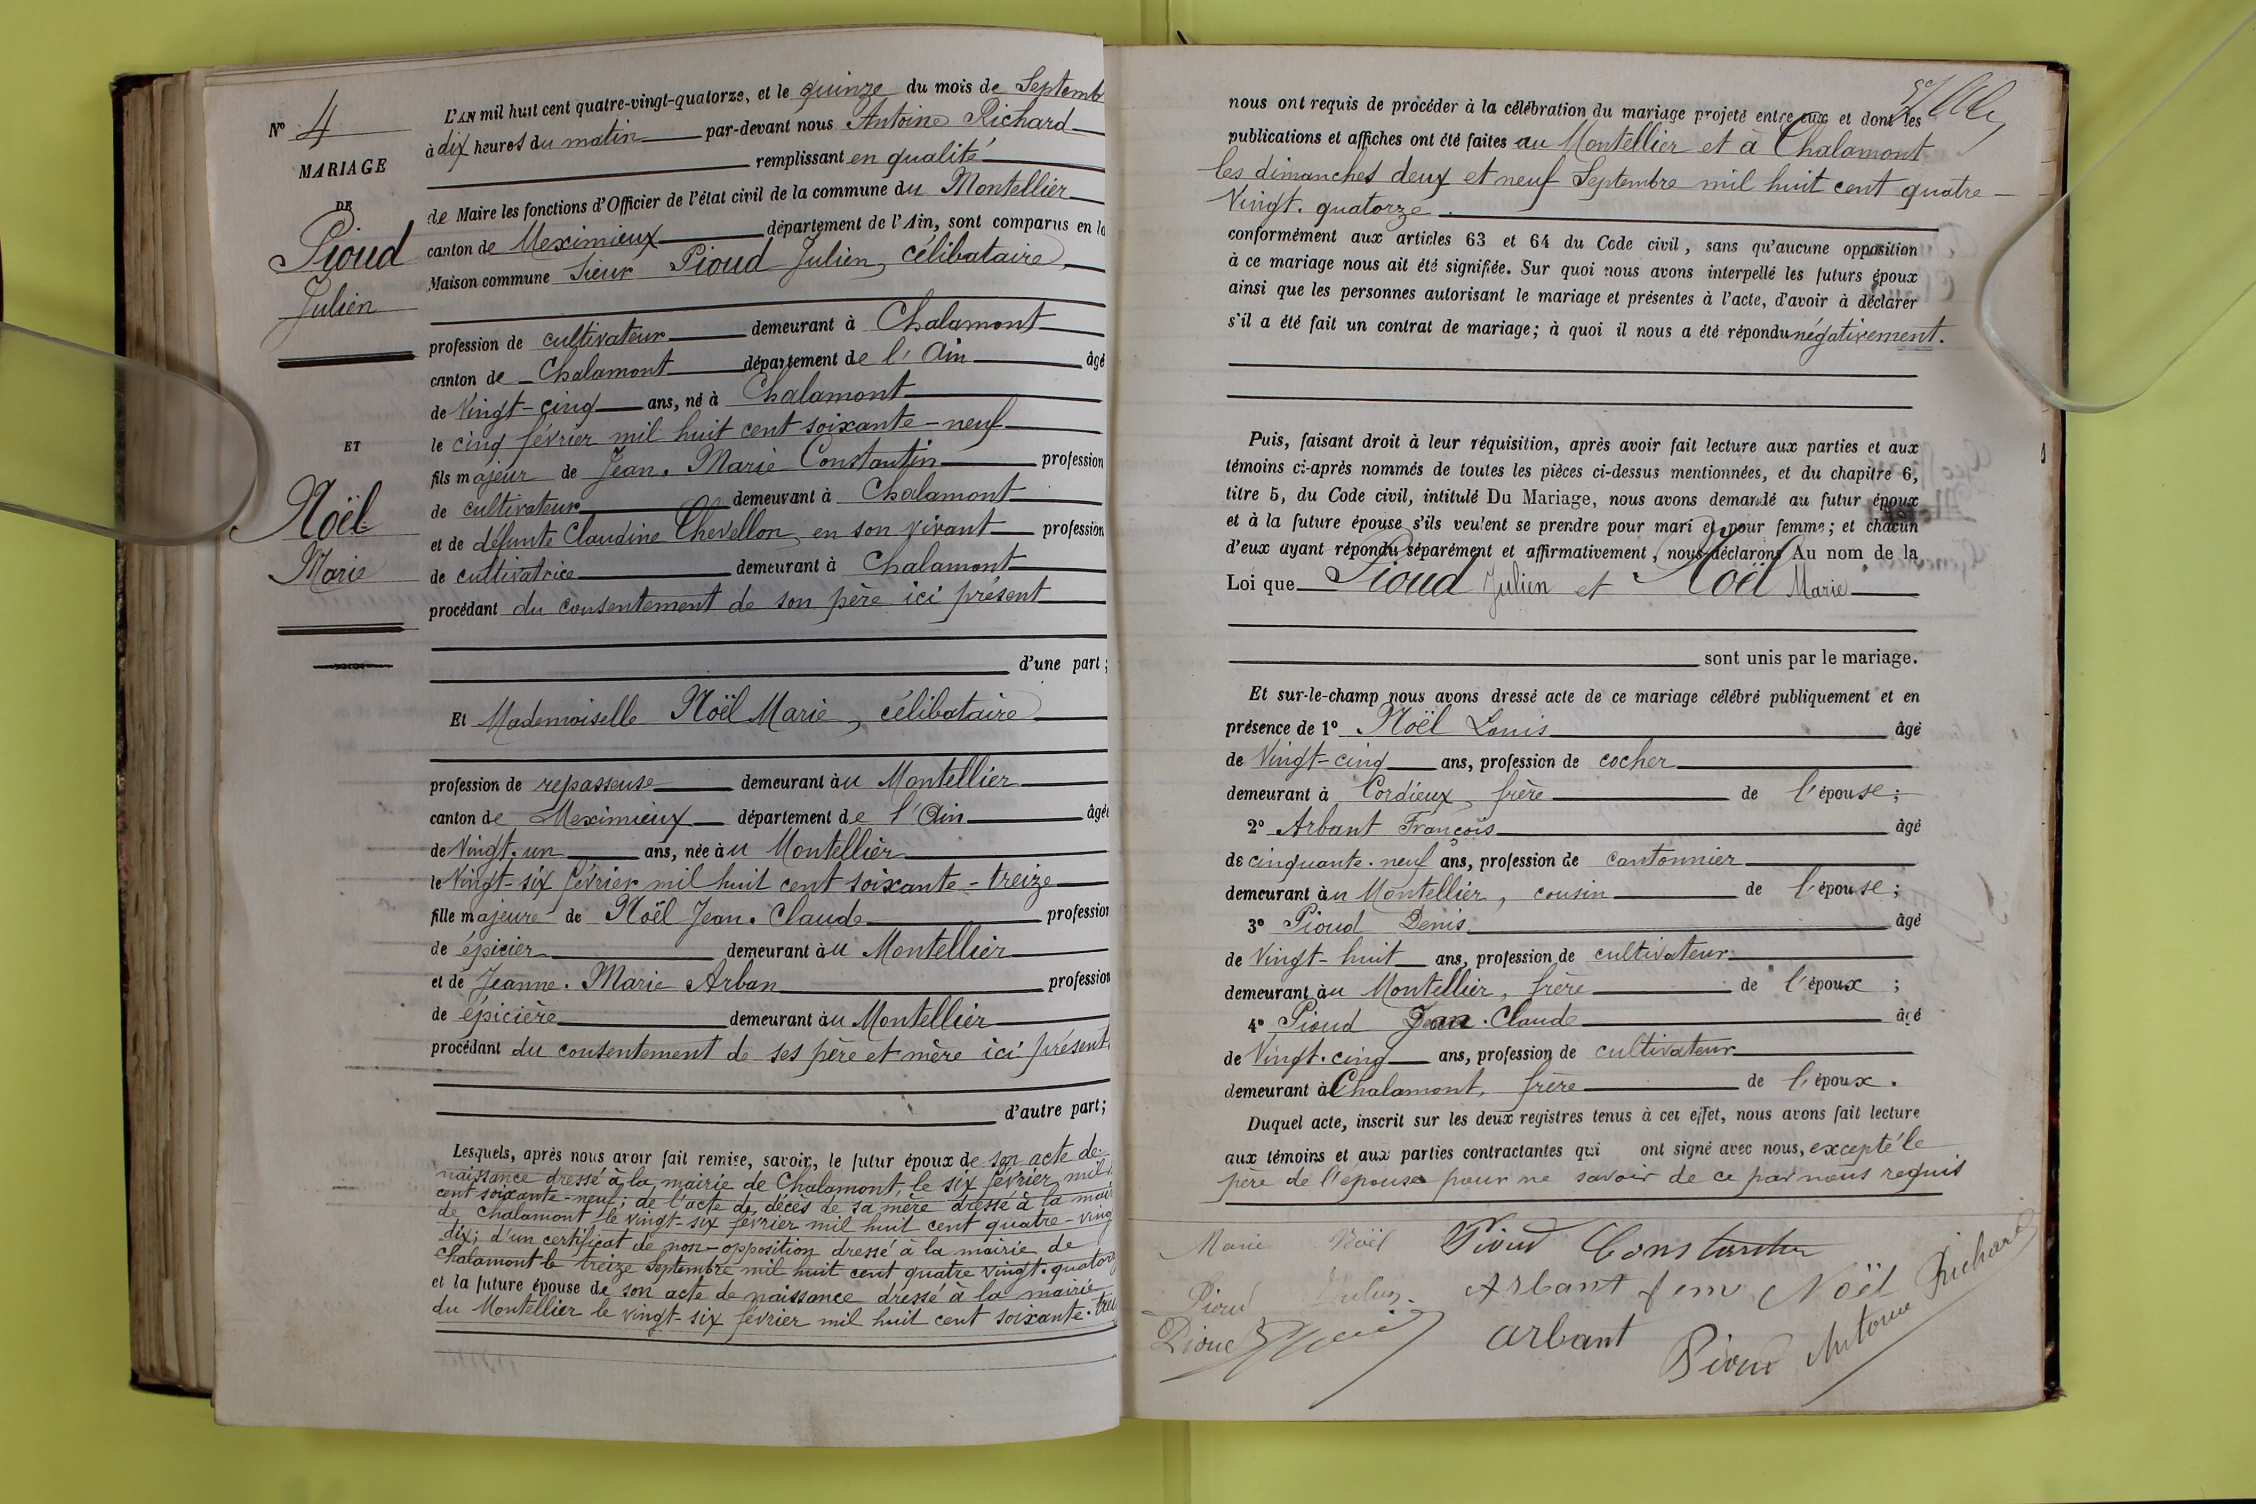 N° 4
MARIAGE
DE
Pioud
Julien
ET
Noël
Marie
L'AN mil huit cent quatre-vingt-quatorze, et le quinze du mois de Septemb
à dix heures du matin par-devant nous Antoine Richard
remplissant en qualité
de Maire les fonctions d'Officier de l'état civil de la commune du Montellier
canton de Meximieux département de l'Ain, sont comparus en la
Maison commune Sieur Pioud Julien, célibataire
profession de cultivateur demeurant à Chalamont
canton de Chalamont département de l'Ain âgé
de Vingt-cinq ans, né à Chalamont
le cinq février mil huit cent soixante-neuf
fils majeur de Jean-Marie Constantin profession
de cultivateur demeurant à Chalamont
et de défunte Claudine Chevellon, en son vivant profession
de cultivatrice demeurant à Chalamont
procédant du consentement de son père ici présent
d'une part;
Et Mademoiselle Noël Marie, célibataire
profession de repasseuse demeurant au Montellier
canton de Meximieux département de l'Ain âgée
de Vingt-un ans, née au Montellier
le Vingt-six février mil huit cent soixante-treize
fille majeure de Noël Jean-Claude profession
de épicier demeurant au Montellier
et de Jeanne-Marie Arban profession
de épicière demeurant au Montellier
procédant du consentement de ses père et mère ici présents
d'autre part;
Lesquels, après nous avoir fait remise, savoir, le futur époux de son acte de
naissance dressé à la mairie de Chalamont, le six février mil
cent soixante-neuf; de l'acte de décès de sa mère dressé à la mair
de Chalamont le vingt-six février mil huit cent quatre-ving
dix; d'un certificat de non-opposition dressé à la mairie de
Chalamont le treize Septembre mil huit cent quatre vingt-quatorz
et la future épouse de son acte de naissance dressé à la mairie
du Montellier le vingt-six février mil huit cent soixante-trei
nous ont requis de procéder à la célébration du mariage projeté entre eux et dont les
publications et affiches ont été faites au Montellier et à Chalamont
les dimanches deux et neuf Septembre mil huit cent quatre-
Vingt-quatorze.
conformément aux articles 63 et 64 du Code civil, sans qu'aucune opposition
à ce mariage nous ait été signifiée. Sur quoi nous avons interpellé les futurs époux
ainsi que les personnes autorisant le mariage et présentes à l'acte, d'avoir à déclarer
s'il a été fait un contrat de mariage; à quoi il nous a été répondu négativement.
Puis, faisant droit à leur réquisition, après avoir fait lecture aux parties et aux
témoins ci-après nommés de toutes les pièces ci-dessus mentionnées, et du chapitre 6,
titre 5, du Code civil, intitulé Du Mariage, nous avons demandé au futur époux
et à la future épouse s'ils veulent se prendre pour mari et pour femme; et chacun
d'eux ayant répondu séparément et affirmativement, nous déclarons Au nom de la
Loi que Pioud Julien et Noël Marie
sont unis par le mariage.
Et sur-le-champ nous avons dressé acte de ce mariage célébré publiquement et en
présence de 1° Noël Louis âgé
de Vingt-cinq ans, profession de cocher
demeurant à Cordieux, frère de l'épouse;
2° Arbant François âgé
de cinquante-neuf ans, profession de cantonnier
demeurant au Montellier, cousin de l'épouse;
3° Pioud Denis âgé
de Vingt-huit ans, profession de cultivateur
demeurant au Montellier, frère de l'époux;
4° Pioud Jean-Claude âgé
de Vingt-cinq ans, profession de cultivateur
demeurant à Chalamont, frère de l'époux.
Duquel acte, inscrit sur les deux registres tenus à cet effet, nous avons fait lecture
aux témoins et aux parties contractantes qui ont signé avec nous, excepté le
père de l'épouse pour ne savoir de ce par nous requis
Marie Noël Pioud Constantin
Pioud Julien Arbant fem Noël
Pioud Arbant Pioud Antoine Richard